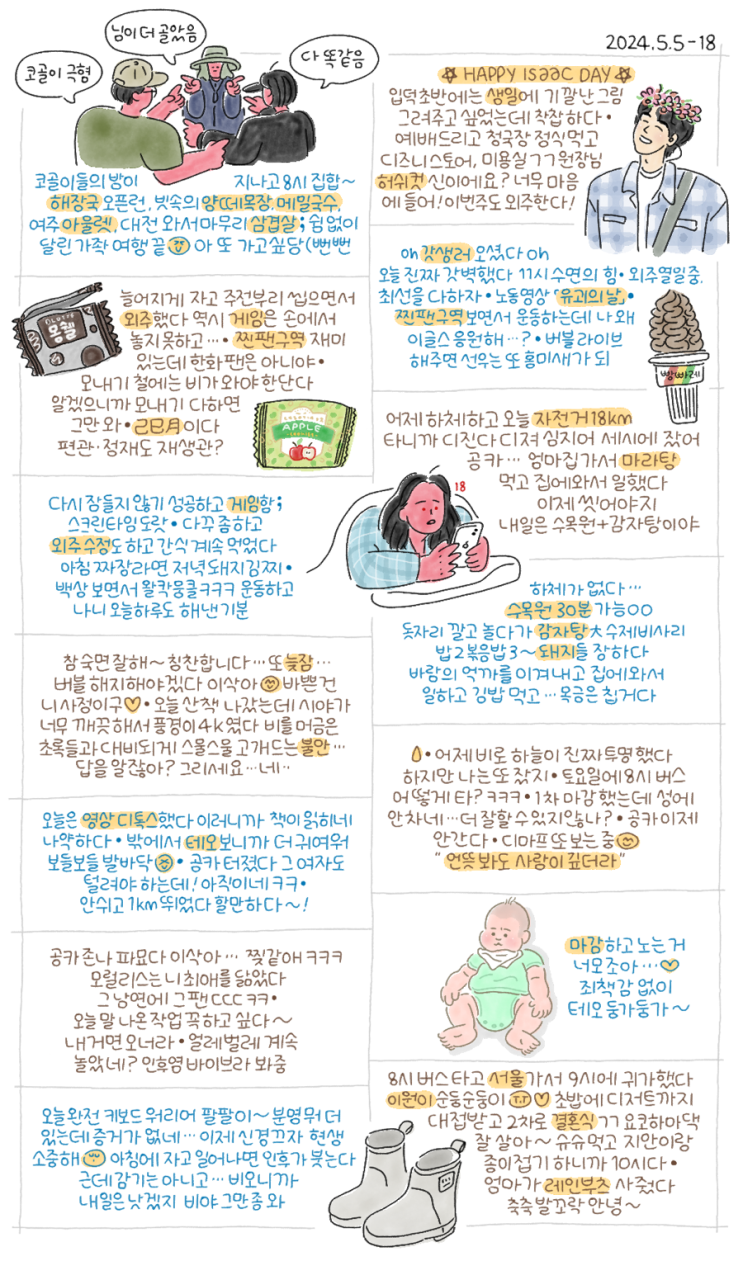 2024.5.5-18
님이 더 골았음
코골이 극혐
다 똑같음
코골이들의 밤이 지나고 8시 집합~
해장국 오픈런, 빗속의 양떼목장, 메밀국수,
여주 아울렛, 대전 와서 마무리 삼겹살; 쉼 없이
달린 가좍 여행 끝 아 또 가고싶당(뻔뻔
LOTTE
몽쉘
늘어지게 자고 주전부리 씹으면서
외주했다 역시 게임은 손에서
놓지못하고…• 찐팬구역 재미
있는데 한화팬은 아니야•
모내기 철에는 비가 와야 한단다
알겠으니까 모내기 다하면
그만 와• 己巳月이다
편관·정재도 재생관?
APPLE
다시 잠들지 않기 성공하고 게임함;
스크린타임 도랏• 다꾸 좀 하고
외주 수정도 하고 간식 계속 먹었다
아침 짜장라면 저녁 돼지김찌•
백상 보면서 왈칵웅클ㅋㅋㅋ 운동하고
나니 오늘하루도 해낸 기분
참 숙면 잘해~ 칭찬합니다… 또 늦잠…
버블 해지해야겠다 이삭아 바쁜 건
니 사정이구♡• 오늘 산책 나갔는데 시야가
너무 깨끗해서 풍경이 4k였다 비를 머금은
초록들과 대비되게 스믈스믈 고개드는 불안…
답을 알잖아? 그리세요…네..
오늘은 영상 디톡스했다 이러니까 책이 읽히네
나약하다• 밖에서 테오보니까 더 귀여워
보들보들 발바닥• 공카 터졌다 그 여자도
털려야 하는데! 아직이네 ㅋㅋ•
안쉬고 1km 뛰었다 할만하다~!
공카 존나 파묘다 이삭아… 찢같애 ㅋㅋㅋ
모럴리스는 니 최애를 닮았다
그낭연에 그팬 ㄷㄷㄷ ㅋㅋ•
오늘 말 나온 작업 꼭하고 싶다~
내거면 오너라• 얼레벌레 계속
놀았네? 인후염 바이브라 봐줌
오늘완전 키보드 워리어 팔팔이~ 분영 뭐 더
있는데 증거가 없네… 이제 신경끄자 현생
소중해 아침에 자고 일어나면 인후가 붓는다
근데 감기는 아니고… 비오니까
내일은 낫겠지 비야 그만 좀 와
HAPPY ISaaC DAY
입덕초반에는 생일에 기깔난 그림
그려주고 싶었는데 착잡하다•
예배드리고 청국장 정식 먹고
디즈니스토어, 미용실 ㄱㄱ 원장님
허쉬컷 신이에요? 너무 마음
에 들어! 이번주도 외주한다!
oh 갓생러 오셨다 oh
오늘 진짜 갓벽했다 11시 수면의 힘• 외주열일중,
최선을 다하자• 노동영상 「유괴의 날」•
찐팬구역보면서 운동하는데 나 왜
이글스 응원해…?• 버블 라이브
해주면 선우는 또 흥미새가 되
빵빠레
어제 하체하고 오늘 자전거 18km
타니까 디진다 디져 심지어 세시에 잤어
공카… 엄마집 가서 마라탕
먹고 집에와서 일했다
이제 씻어야지
내일은 수목원+감자탕이야
18
하체가 없다…
수목원 30분 가능○○
돗자리 깔고 놀다가 감자탕 大 수제비사리
밥2 볶음밥3~ 돼지들 장하다
바람의 억까를 이겨내고 집에 와서
일하고 김밥 먹고… 목금은 칩거다
• 어제 비로 하늘이 진짜 투명했다
하지만 나는 또 잤지• 토요일에 8시 버스
어떻게 타? ㅋㅋㅋ• 1차 마감했는데 성에
안차네… 더 잘할 수 있지않나?• 공카 이제
안간다• 디마프 또 보는 중
"언뜻 봐도 사랑이 깊더라"
마감하고 노는거
너모 조아…♡
죄책감 없이
테오 둥가둥가~
8시 버스타고 서울가서 9시에 귀가했다
이원이 순둥순둥이 T.T ♡ 초밥에 디저트까지
대접받고 2차로 결혼식 ㄱㄱ 요코하마댁
잘 살아~ 슈슈먹고 지안이랑
종이접기 하니까 10시다•
엄마가 레인부츠 사줬다
축축 발꼬락 안녕~